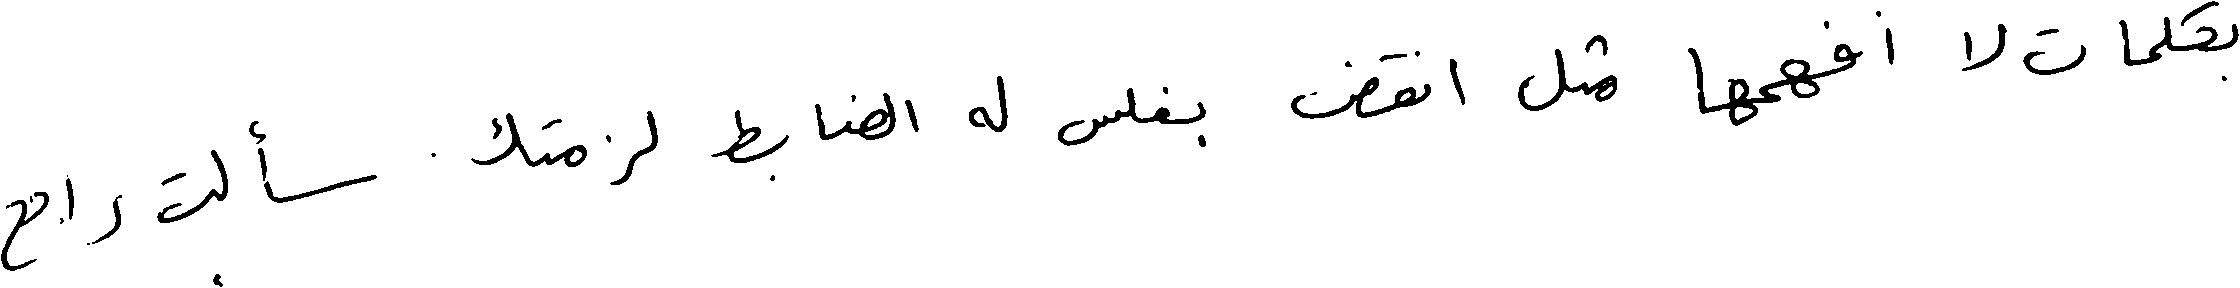 بكلمات لا أفهمها مثل انقض بفلس له الضابط لزمتك. سألت راح